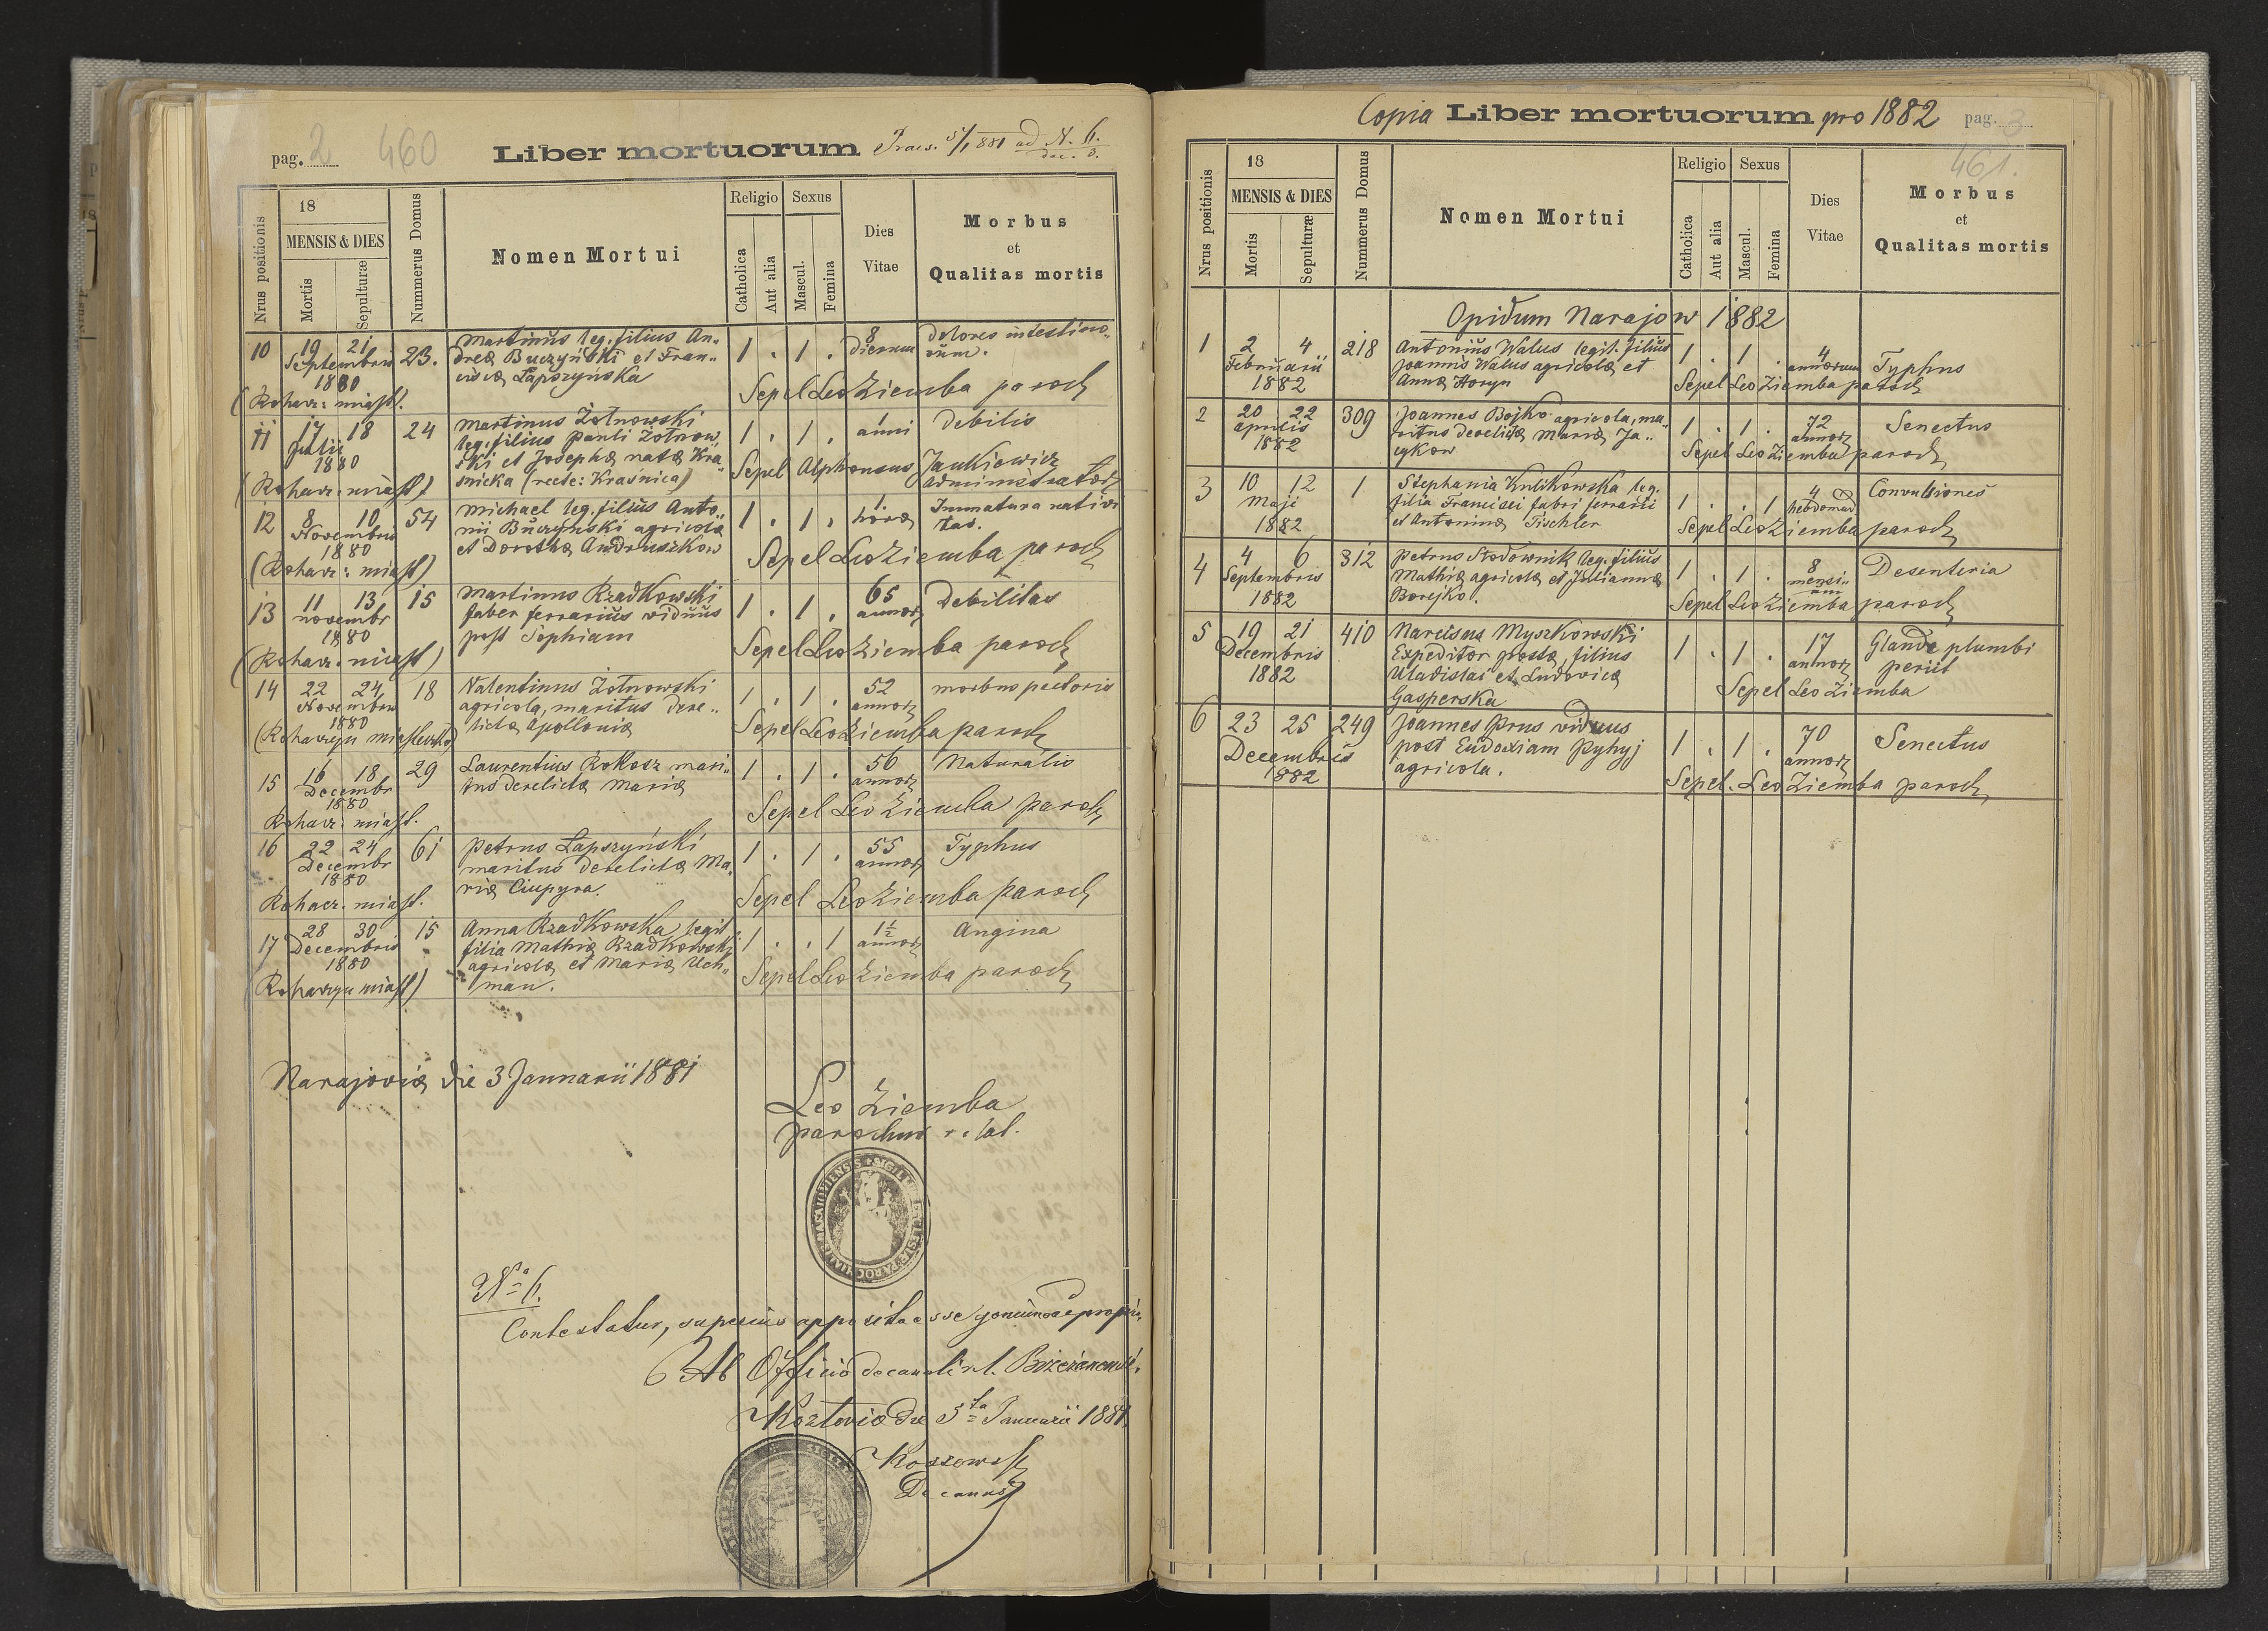 pag. 2 460
Liber mortuorum Praes. 5/1 881 ad N. 6.
dec. b.
Nrus positionis
18
MENSIS & DIES
Mortis
Sepulturæ
Nummerus Domus
Nomen Mortui
Religio
Catholica
Aut alia
Sexus
Mascul.
Femina
Dies
Vitae
Morbus
et
Qualitas mortis
10 19 21 23. Martinus leg. filius An„ 1 . 1 . 8 dolores intestino„
Septembris dreæ Buczyński et Fran„ dierum rum.
1880 ciscæ Łapszyńska
(Rohacz: miast. Sepel Leo Ziemba paroch
11 17 18 24 Martinus Żotnowski 1 . 1 . 1 Debilis
Julii leg. filius Pauli Żotnow„ anni
1880 ski et Josephæ natæ Kra„
(Rohacz: miast) śnicka (recte: Kraśnica) Sepel Alphonsus Jankiewicz
Administrator
12 8 10 54 Michael leg. filius Anto„ 1 . 1 . 1 Immatura nativi
Novembris nii Buczynski agricolæ horæ tas.
1880 et Dorothæ Andruszkow
(Rohacz: miast) Sepel Leo Ziemba paroch
13 11 13 15 Martinus Rzadkowski 1 . 1 . 65 Debilitas
novembr faber ferrarius viduus annor
1880 post Sophiam
(Rohacz. miast) Sepel Leo Ziemba paroch
14 22 24 18 Valentinus Żotnowski 1 . 1 . 52 morbus pectoris
Novembris agricola, maritus dere„ annor
1880 lictæ Apolloniæ
(Rohaczyn miasteczko) Sepel Leo Ziemba paroch
15 16 18 29 Laurentius Rokosz mari„ 1 . 1 . 56 Naturalis
Decembr tus derelictæ Mariæ annor
1880
Rohacz: miast. Sepel Leo Ziemba paroch
16 22 24 61 Petrus Łapszyński 1 . 1 . 55 Typhus
Decembr maritus derelictæ Ma„ annor
1880 riæ Ciupyra.
Rohacz. miast. Sepel Leo Ziemba paroch
17 28 30 15 Anna Rzadkowska legit 1 . . 1 1½ Angina
Decembris filia Mathiæ Rzadkowski annor
1880 agricolæ et Mariæ Uch„
(Rohaczyn miast) man. Sepel Leo Ziemba paroch
Narajoviæ die 3 Januarii 1881
Leo Ziemba
parochus r. lat.
No 6.
Contestatur, superius apposita esse genuina
Ab Officio decanali r. l. Brzeżanensi.
Kozloviæ die 5ta Januarii 1881.
Decanus
Copia Liber mortuorum pro 1882 pag. 3
461.
Nrus positionis
18
MENSIS & DIES
Mortis
Sepulturæ
Nummerus Domus
Nomen Mortui
Religio
Catholica
Aut alia
Sexus
Mascul.
Femina
Dies
Vitae
Morbus
et
Qualitas mortis
Opidum Narajow 1882
1 2 4 218 Antonius Walus legit. filius 1 . 1 . 4 Typhus
Februarii Joannis Walus agricolæ et annorum
1882 Annæ Horyn Sepel Leo Ziemba paroch
2 20 22 309 Joannes Bojko agricola, ma„ 1 . 1 . 72 Senectus
aprilis ritus derelictæ Mariæ Ja„ annor
1882 cykow Sepel Leo Ziemba paroch
3 10 12 1 Stephania Kulikowska leg. 1 . . 1 4 Convulsiones
Maji filia Francisci fabri ferrarii hebdomad
1882 et Antoninæ Tischler Sepel Leo Ziemba paroch
4 4 6 312 Petrus Stodownik leg. filius 1 . 1 . 8 Desenteria
Septembris Mathiæ agricolæ et Julianna mensi„
um
1882 Borejko. Sepel Leo Ziemba paroch
5 19 21 410 Narcisus Myszkowski 1 . 1 . 17 Glande plumbi
Decembris Expeditor postæ, filius annor periit
1882 Uladislai et Ludovicæ Sepel Leo Ziemba
Gasperska
6 23 25 249 Joannes Prus viduus 1 . 1 . 70 Senectus
Decembris post Eudoxiam Pyhyj annor
1882 agricola. Sepel. Leo Ziemba paroch